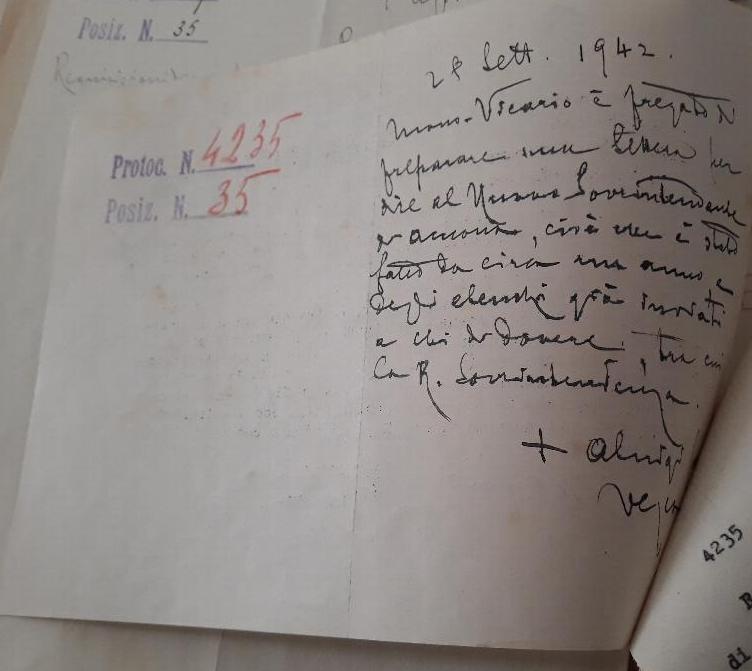 Posiz. N. 35
Protoc. N. 4235
Posiz. N. 35
Sett. 1942.
Mons. Vicario è pregato di
preparare una lettera per
dire al Nuovo Sovrintendente
è stato
fatto da circa un anno e
degli elenchi già inviati
a chi di dovere, tra cui
la R. Sovrintendenza.
+
4235
di